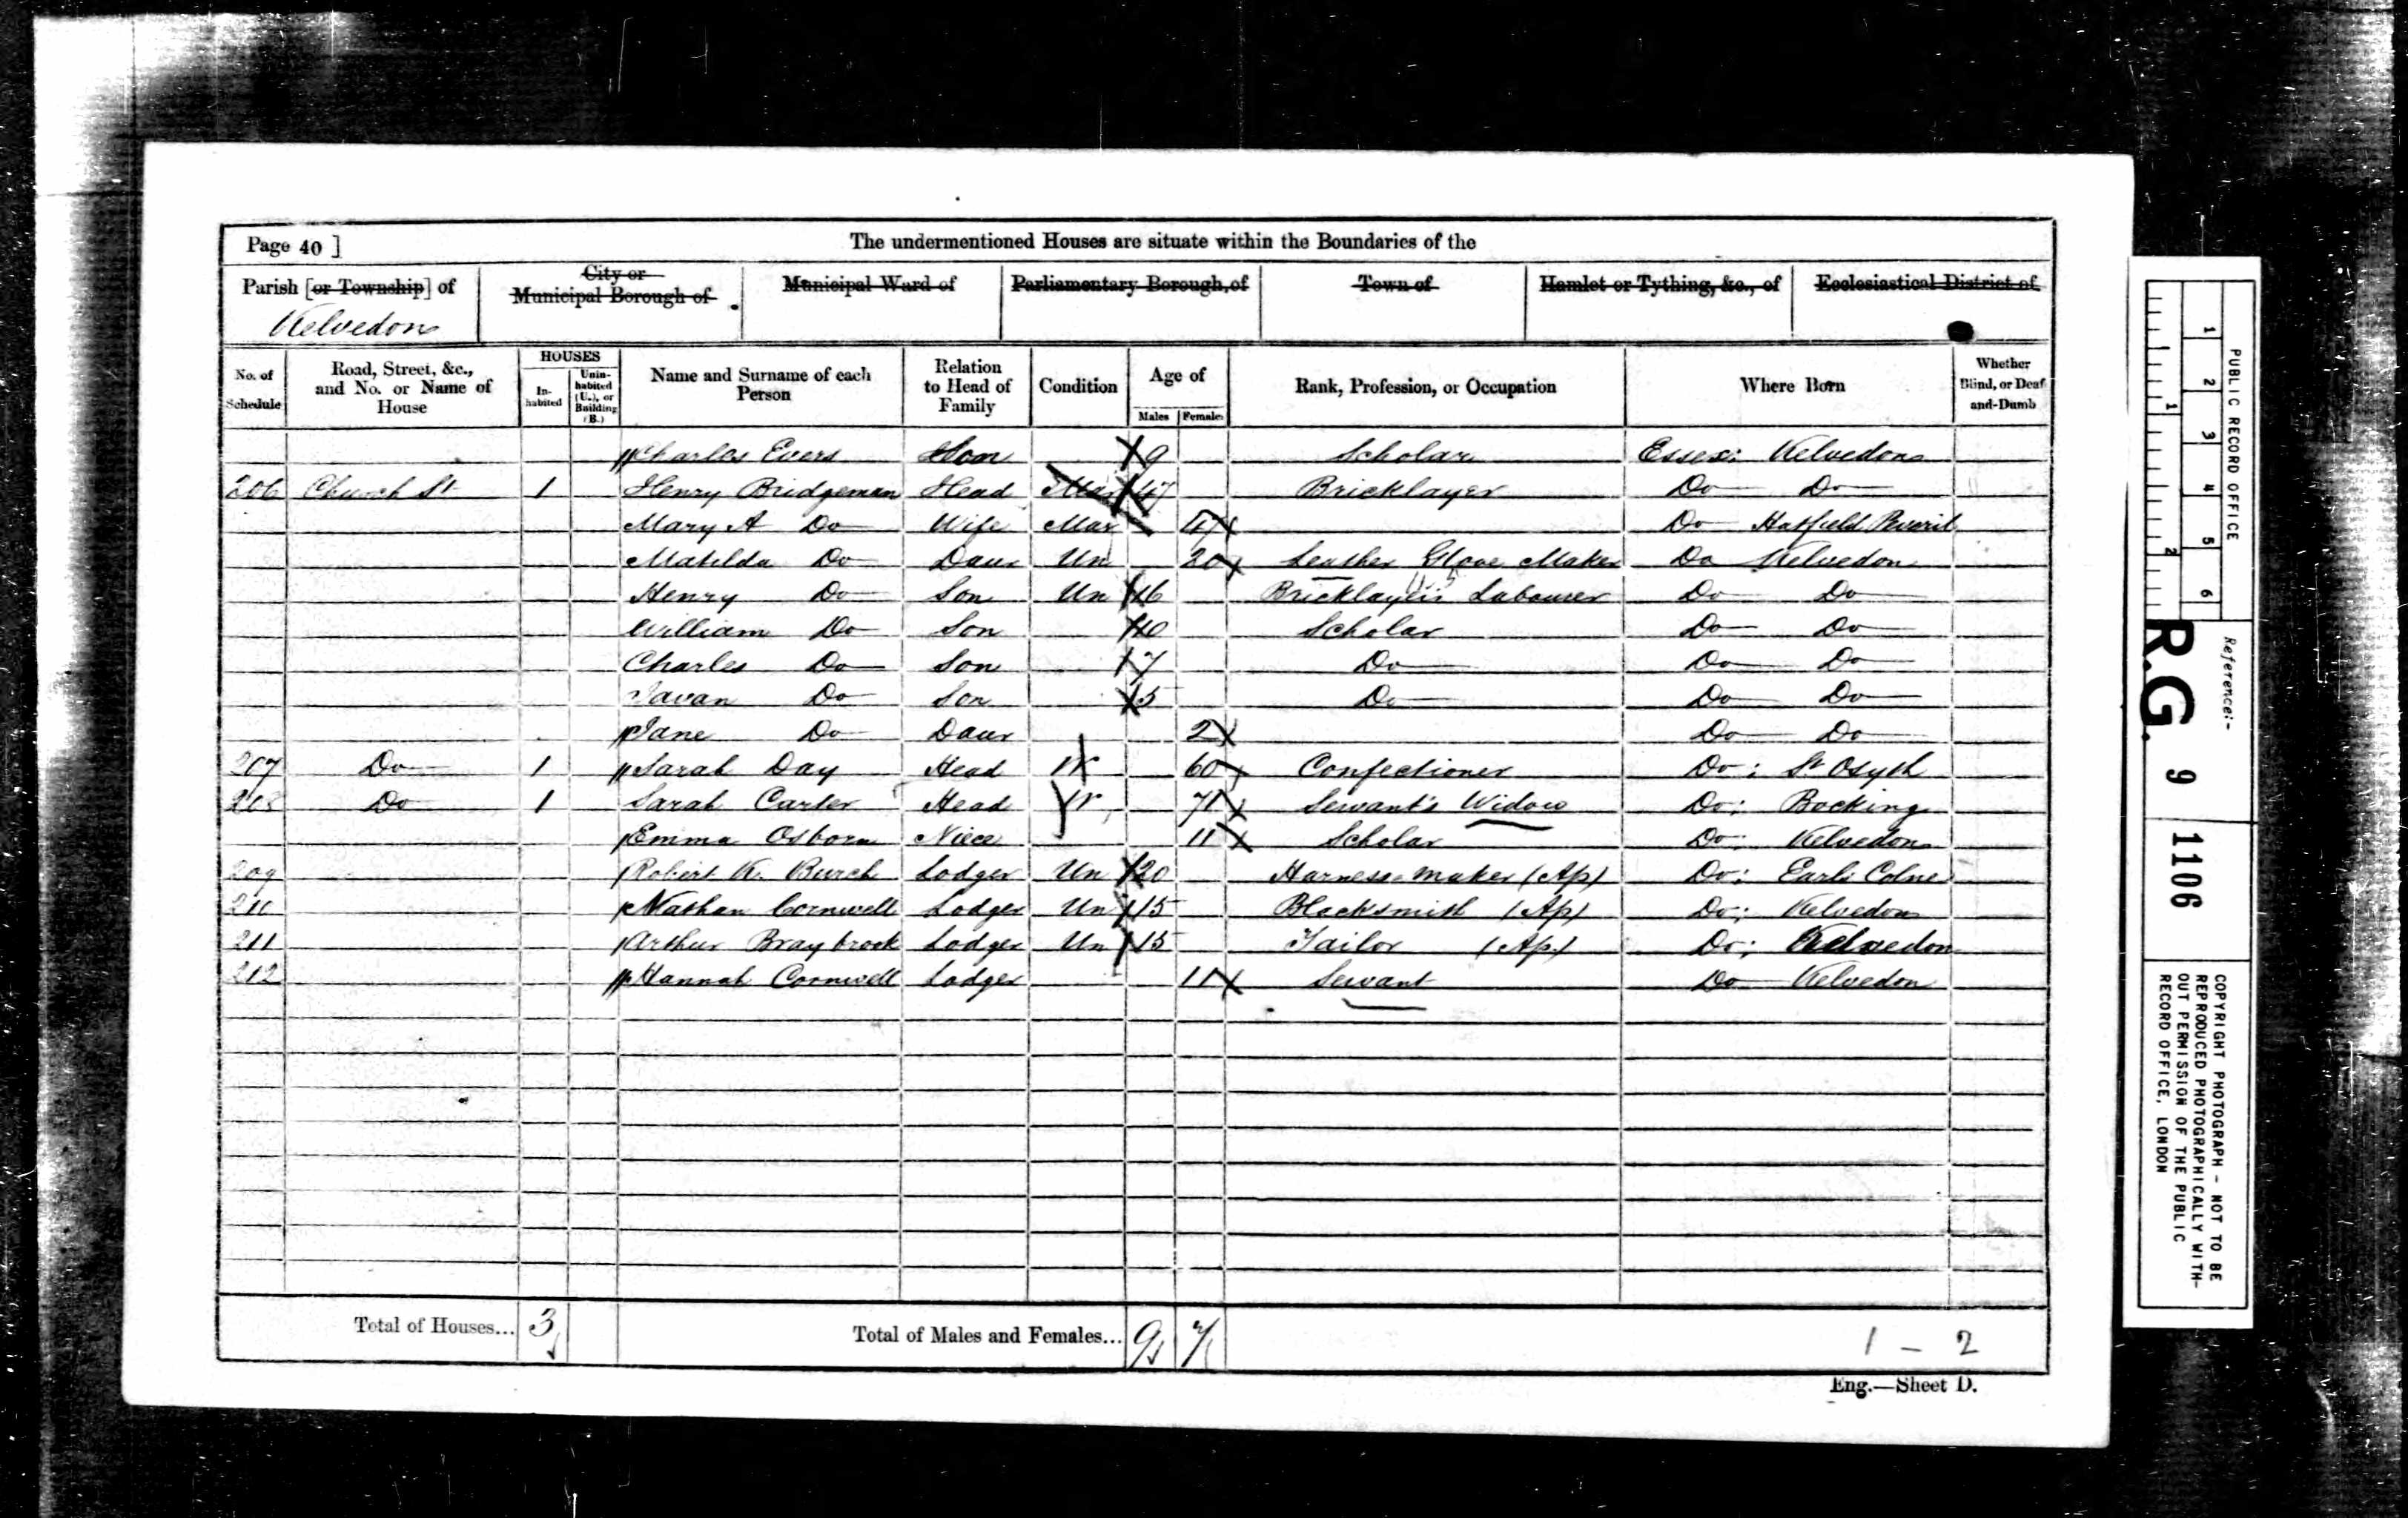 Page 40 ] The undermentioned Houses are situate within the Boundaries of the
Parish [or Township] of City or Municipal Borough of Municipal Ward of Parliamentary Borough of Town of Hamlet or Tything, &c., of Ecclesiastical District of
Kelvedon
No. of Schedule Road, Street, &c., and No. or Name of House HOUSES In-habited Unin-habited (U.), or Building (B.) Name and Surname of each Person Relation to Head of Family Condition Age of Males Females Rank, Profession, or Occupation Where Born Whether Blind, or Deaf-and-Dumb
Charles Evers Son 9 Scholar Essex: Kelvedon
206 Church St 1 Henry Bridgeman Head Mar 47 Bricklayer Do Do
Mary A Do Wife Mar Do Hatfield Peveril
Matilda Do Daur Un 20 Leather Glove Maker Do Kelvedon
Henry Do Son Un 16 Bricklayer's Labourer Do Do
William Do Son 10 Scholar Do Do
Charles Do Son 7 Do Do Do
Javan Do Son 5 Do Do Do
Jane Do Daur 2 Do Do
207 Do 1 Sarah Day Head W 60 Confectioner Do: St Osyth
208 Do 1 Sarah Carter Head W 71 Servant's Widow Do: Bocking
Emma Osborn Niece 11 Scholar Do: Kelvedon
209 Robert K. Burch Lodger Un 20 Harness-maker (Ap) Do: Earls Colne
210 Nathan Cornwell Lodger Un 15 Blacksmith (Ap) Do: Kelvedon
211 Arthur Braybrook Lodger Un 15 Tailor (Ap) Do: Kelvedon
212 Hannah Cornwell Lodger 11 Servant Do Kelvedon
Total of Houses... 3 Total of Males and Females... 9 7 1 - 2
Eng.—Sheet D.
PUBLIC RECORD OFFICE
1 2 3 4 5 6
1 2
Reference:-
R.G. 9 1106
COPYRIGHT PHOTOGRAPH - NOT TO BE
REPRODUCED PHOTOGRAPHICALLY WITH-
OUT PERMISSION OF THE PUBLIC
RECORD OFFICE, LONDON